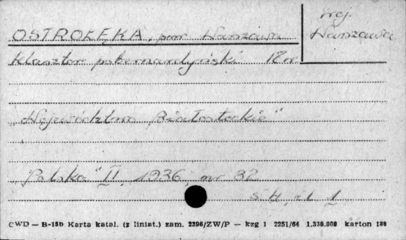 OSTROŁĘKA, pow. Warszawa
woj. Warszawa
Klasztor pobernardyński 18 w
„Województwo Białostockie"
„Polska" II, 1936, nr 32
str., il. 1
CWD — B-15b Karta katal. (z liniat.) zam. 2396/ZW/P — kzg 1 2251/64 1.330.000 karton 180